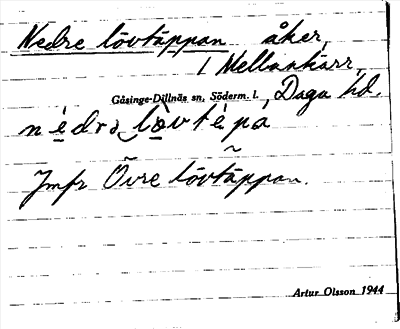 Nedre lövtäppan åker,
i Mellankärr,
Gåsinge-Dillnäs sn, Söderm. l. Daga hd.
Jmfr Övre lövtäppan.
Artur Olsson 1944